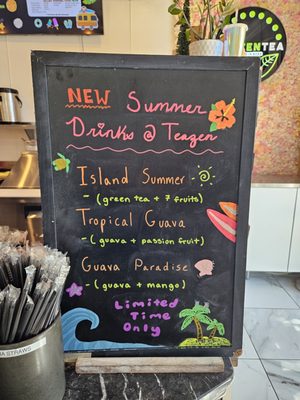 NEW Summer
Drinks @ Teazen
Island Summer
- (green tea + 7 fruits)
Tropical Guava
- (guava + passion fruit)
Guava Paradise
- (guava + mango)
Limited
Time
Only
ENTEA
STRAWS